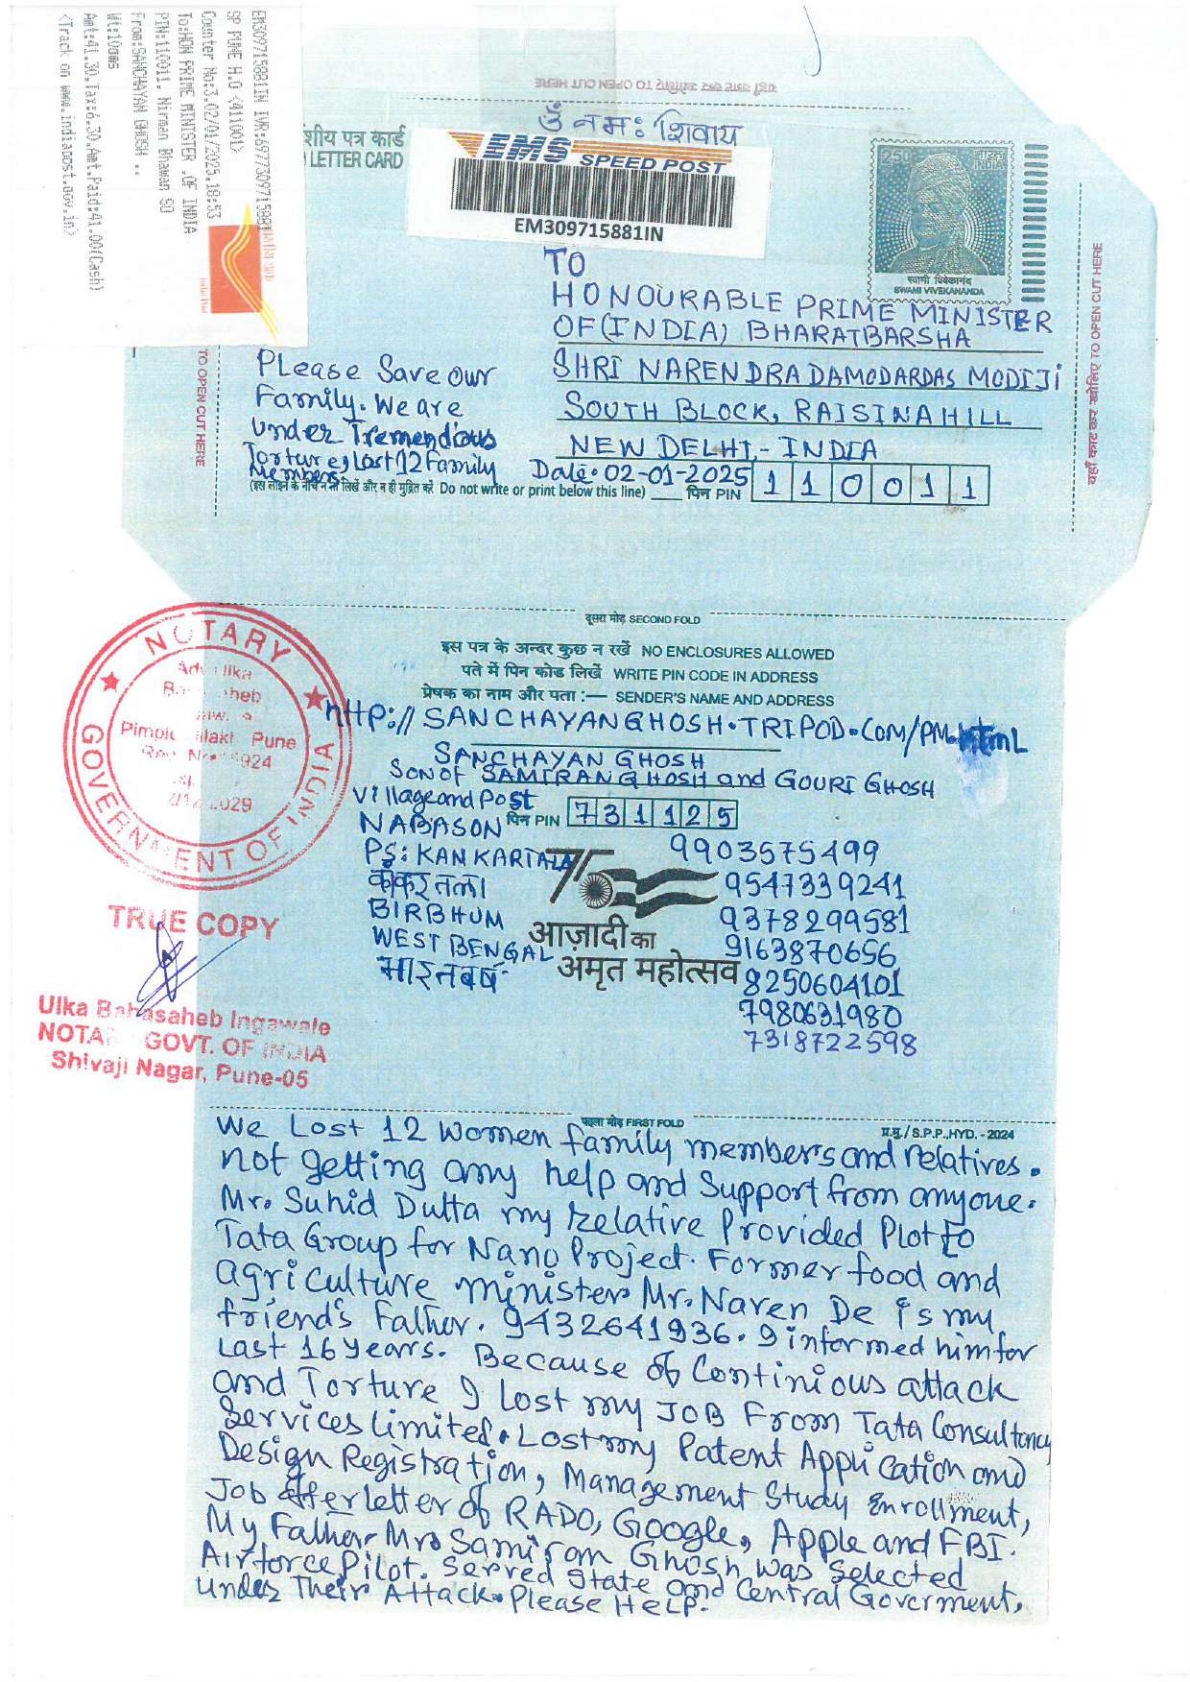 EM309715881IN IVR:6977309715881
SP PUNE H.O <411001>
Counter No:3,02/01/2025,18:53
To:HON PRIME MINISTER .OF INDIA
PIN:110011, Nirman Bhawan SO
From:SANCHAYAN GHOSH ..
Wt:10gms
Amt:41.30,Tax:6.30,Amt.Paid:41.00(Cash)
<Track on www.indiapost.gov.in>
India Post
TO OPEN CUT HERE
ॐ नमः शिवाय
शीय पत्र कार्ड
LETTER CARD
EMS SPEED POST
EM309715881IN
250
INDIA
स्वामी विवेकानन्द
SWAMI VIVEKANANDA
यहाँ काट कर खोलिए TO OPEN CUT HERE
TO OPEN CUT HERE
TO
HONOURABLE PRIME MINISTER
OF (INDIA) BHARATBARSHA
SHRI NARENDRA DAMODARDAS MODIJI
SOUTH BLOCK, RAISINA HILL
NEW DELHI - INDIA
Date: 02-01-2025
Please Save our
Family. We are
Under Tremendious
Torture, Lost 12 Family
Members
(इस लाइन के नीचे न तो लिखें और न ही मुद्रित करें Do not write or print below this line)
पिन PIN 110011
दूसरा मोड़ SECOND FOLD
इस पत्र के अन्दर कुछ न रखें NO ENCLOSURES ALLOWED
पते में पिन कोड लिखें WRITE PIN CODE IN ADDRESS
प्रेषक का नाम और पता :— SENDER'S NAME AND ADDRESS
http://SANCHAYANGHOSH.TRIPOD.COM/PM.HTML
SANCHAYAN GHOSH
SON OF SAMIRAN GHOSH and GOURI GHOSH
Village and Post
NABASON पिन PIN 731125
PS: KANKARTALA
कांकरतला
BIRBHUM
WEST BENGAL
भारतवर्ष
9903575499
9547339241
9378299581
9163870656
8250604101
7980631980
7318722598
75
आज़ादी का
अमृत महोत्सव
NOTARY
GOVERNMENT OF INDIA
Pune
TRUE COPY
Ulka Babasaheb Ingawale
NOTARY GOVT. OF INDIA
Shivaji Nagar, Pune-05
पहला मोड़ FIRST FOLD
प्र.मु./S.P.P.,HYD. - 2024
We Lost 12 women family members and relatives.
not getting any help and Support from anyone.
Mr. Suhid Dutta my relative Provided Plot to
Tata Group for Nano Project. Former food and
agriculture minister Mr. Naren De is my
friend's Father. 9432641936. I informed him for
Last 16 years. Because of Continious attack
and Torture I lost my JOB From Tata Consultancy
Services Limited. Lost my Patent Application and
Design Registration, Management Study Enrollment,
Job offer letter of RADO, Google, Apple and FBI.
My Father Mr. Samiran Ghosh was selected
Airforce Pilot. Served State and Central Goverment,
under Their Attack. Please Help.